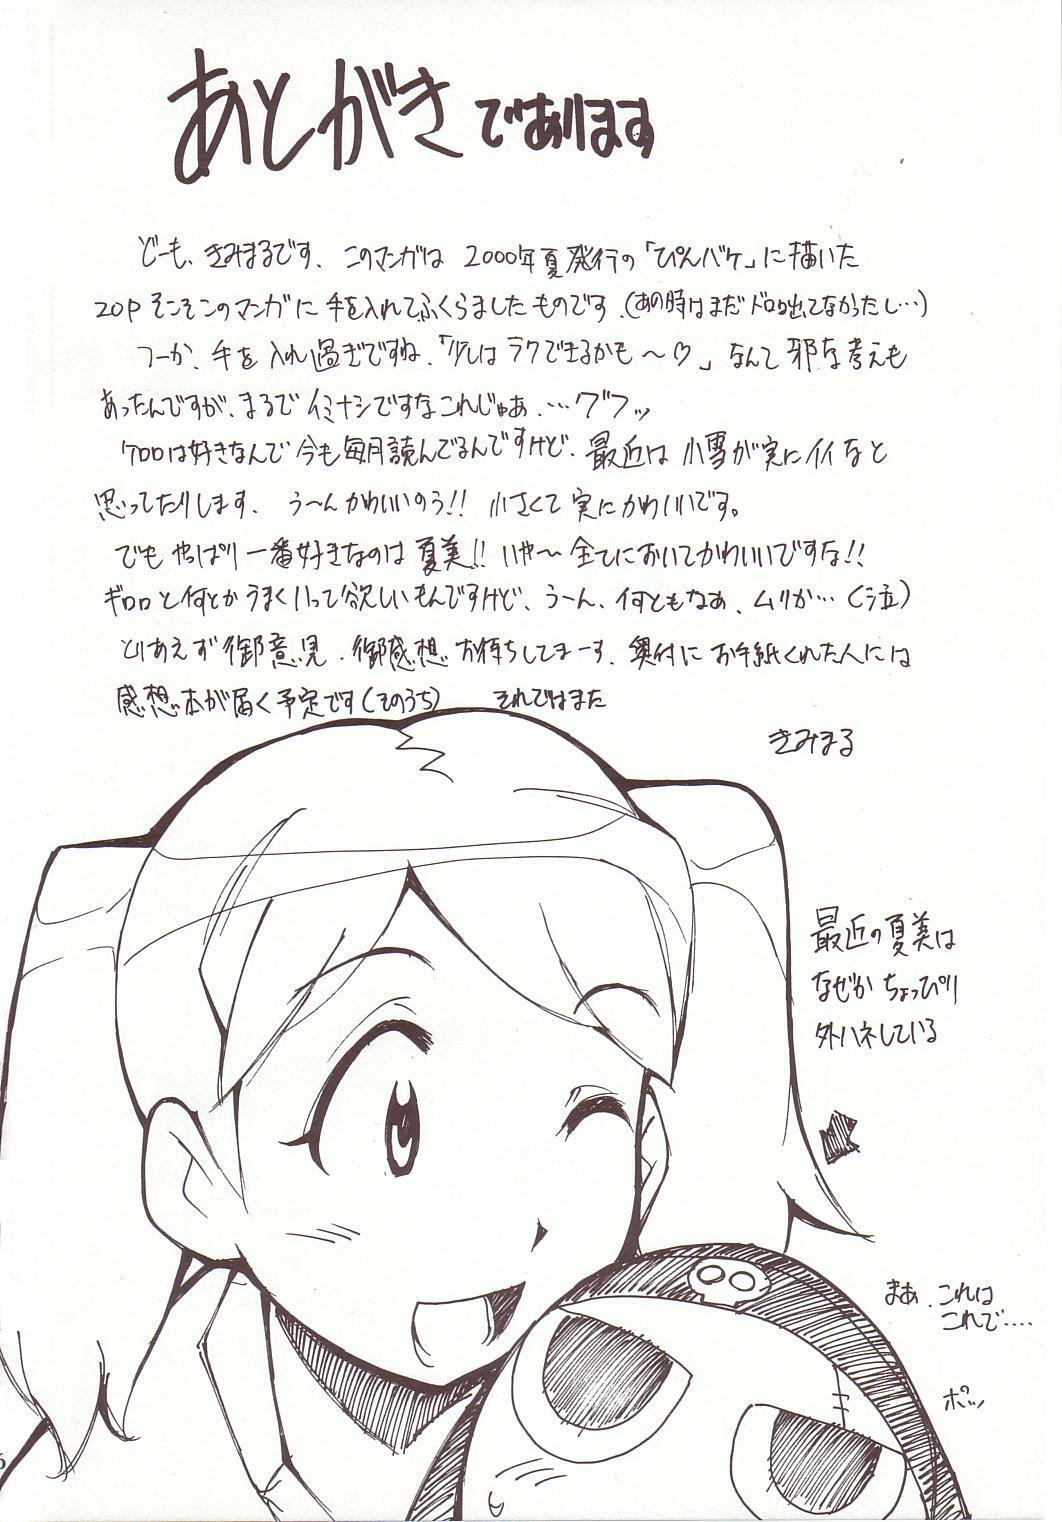 あとがきであります
どーも、きみまるです、このマンガは 2000年夏発行の「ぴんバケ」に描いた
20Pそこそこのマンガに手を入れてふくらましたものです、(あの時はまだドロロ出てなかったし…)
つーか、手を入れ過ぎですね、「少しはラクできるかも～♡」なんて邪な考えも
あったんですが、まるでイミナシですなこれじゃあ、…グフッ
ケロロは好きなんで今も毎月読んでるんですけど、最近は小雪が実にイイなと
思ってたりします、う～んかわいいのう!! 小さくて実にかわいいです。
でもやっぱり一番好きなのは夏美!! いや～全てにおいてかわいいですな!!
ギロロと何とかうまくいって欲しいもんですけど、う～ん、何ともなあ、ムリか…(泣)
とりあえず御意見、御感想お待ちしてまーす、奥付にお手紙くれた人には
感想本が届く予定です(そのうち) それではまた
きみまる
最近の夏美は
なぜかちょっぴり
外ハネしている
まあ、これは
これで‥‥
ポッ